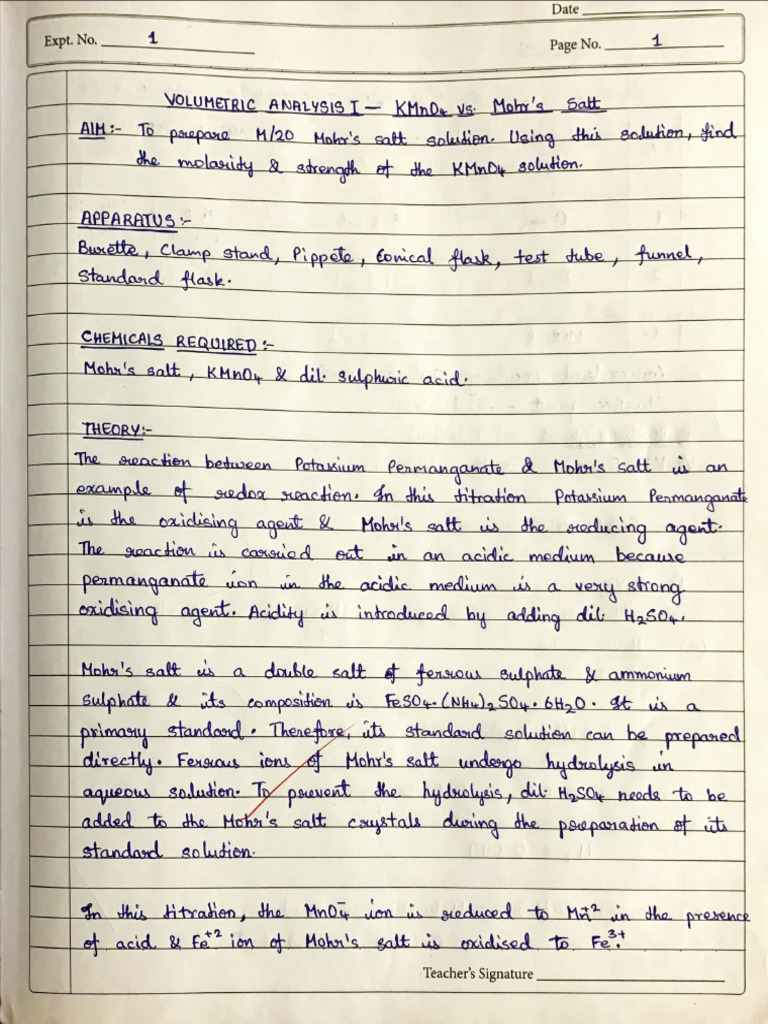 Date
Expt. No. 1
Page No. 1
VOLUMETRIC ANALYSIS I — KMnO4 vs. Mohr's Salt
AIM:- To prepare M/20 Mohr's salt solution. Using this solution, find
the molarity & strength of the KMnO4 solution.
APPARATUS:-
Burette, Clamp stand, Pippete, Conical flask, test tube, funnel,
Standard flask.
CHEMICALS REQUIRED:-
Mohr's salt, KMnO4 & dil. sulphuric acid.
THEORY:-
The reaction between Potassium Permanganate & Mohr's salt is an
example of redox reaction. In this titration Potassium Permanganate
is the oxidising agent & Mohr's salt is the reducing agent.
The reaction is carried out in an acidic medium because
permanganate ion in the acidic medium is a very strong
oxidising agent. Acidity is introduced by adding dil. H2SO4.
Mohr's salt is a double salt of ferrous sulphate & ammonium
sulphate & its composition is FeSO4.(NH4)2SO4.6H2O. It is a
primary standard. Therefore, its standard solution can be prepared
directly. Ferrous ions of Mohr's salt undergo hydrolysis in
aqueous solution. To prevent the hydrolysis, dil. H2SO4 needs to be
added to the Mohr's salt crystals during the preparation of its
standard solution.
In this titration, the MnO4- ion is reduced to Mn+2 in the presence
of acid & Fe+2 ion of Mohr's salt is oxidised to Fe3+.
Teacher's Signature